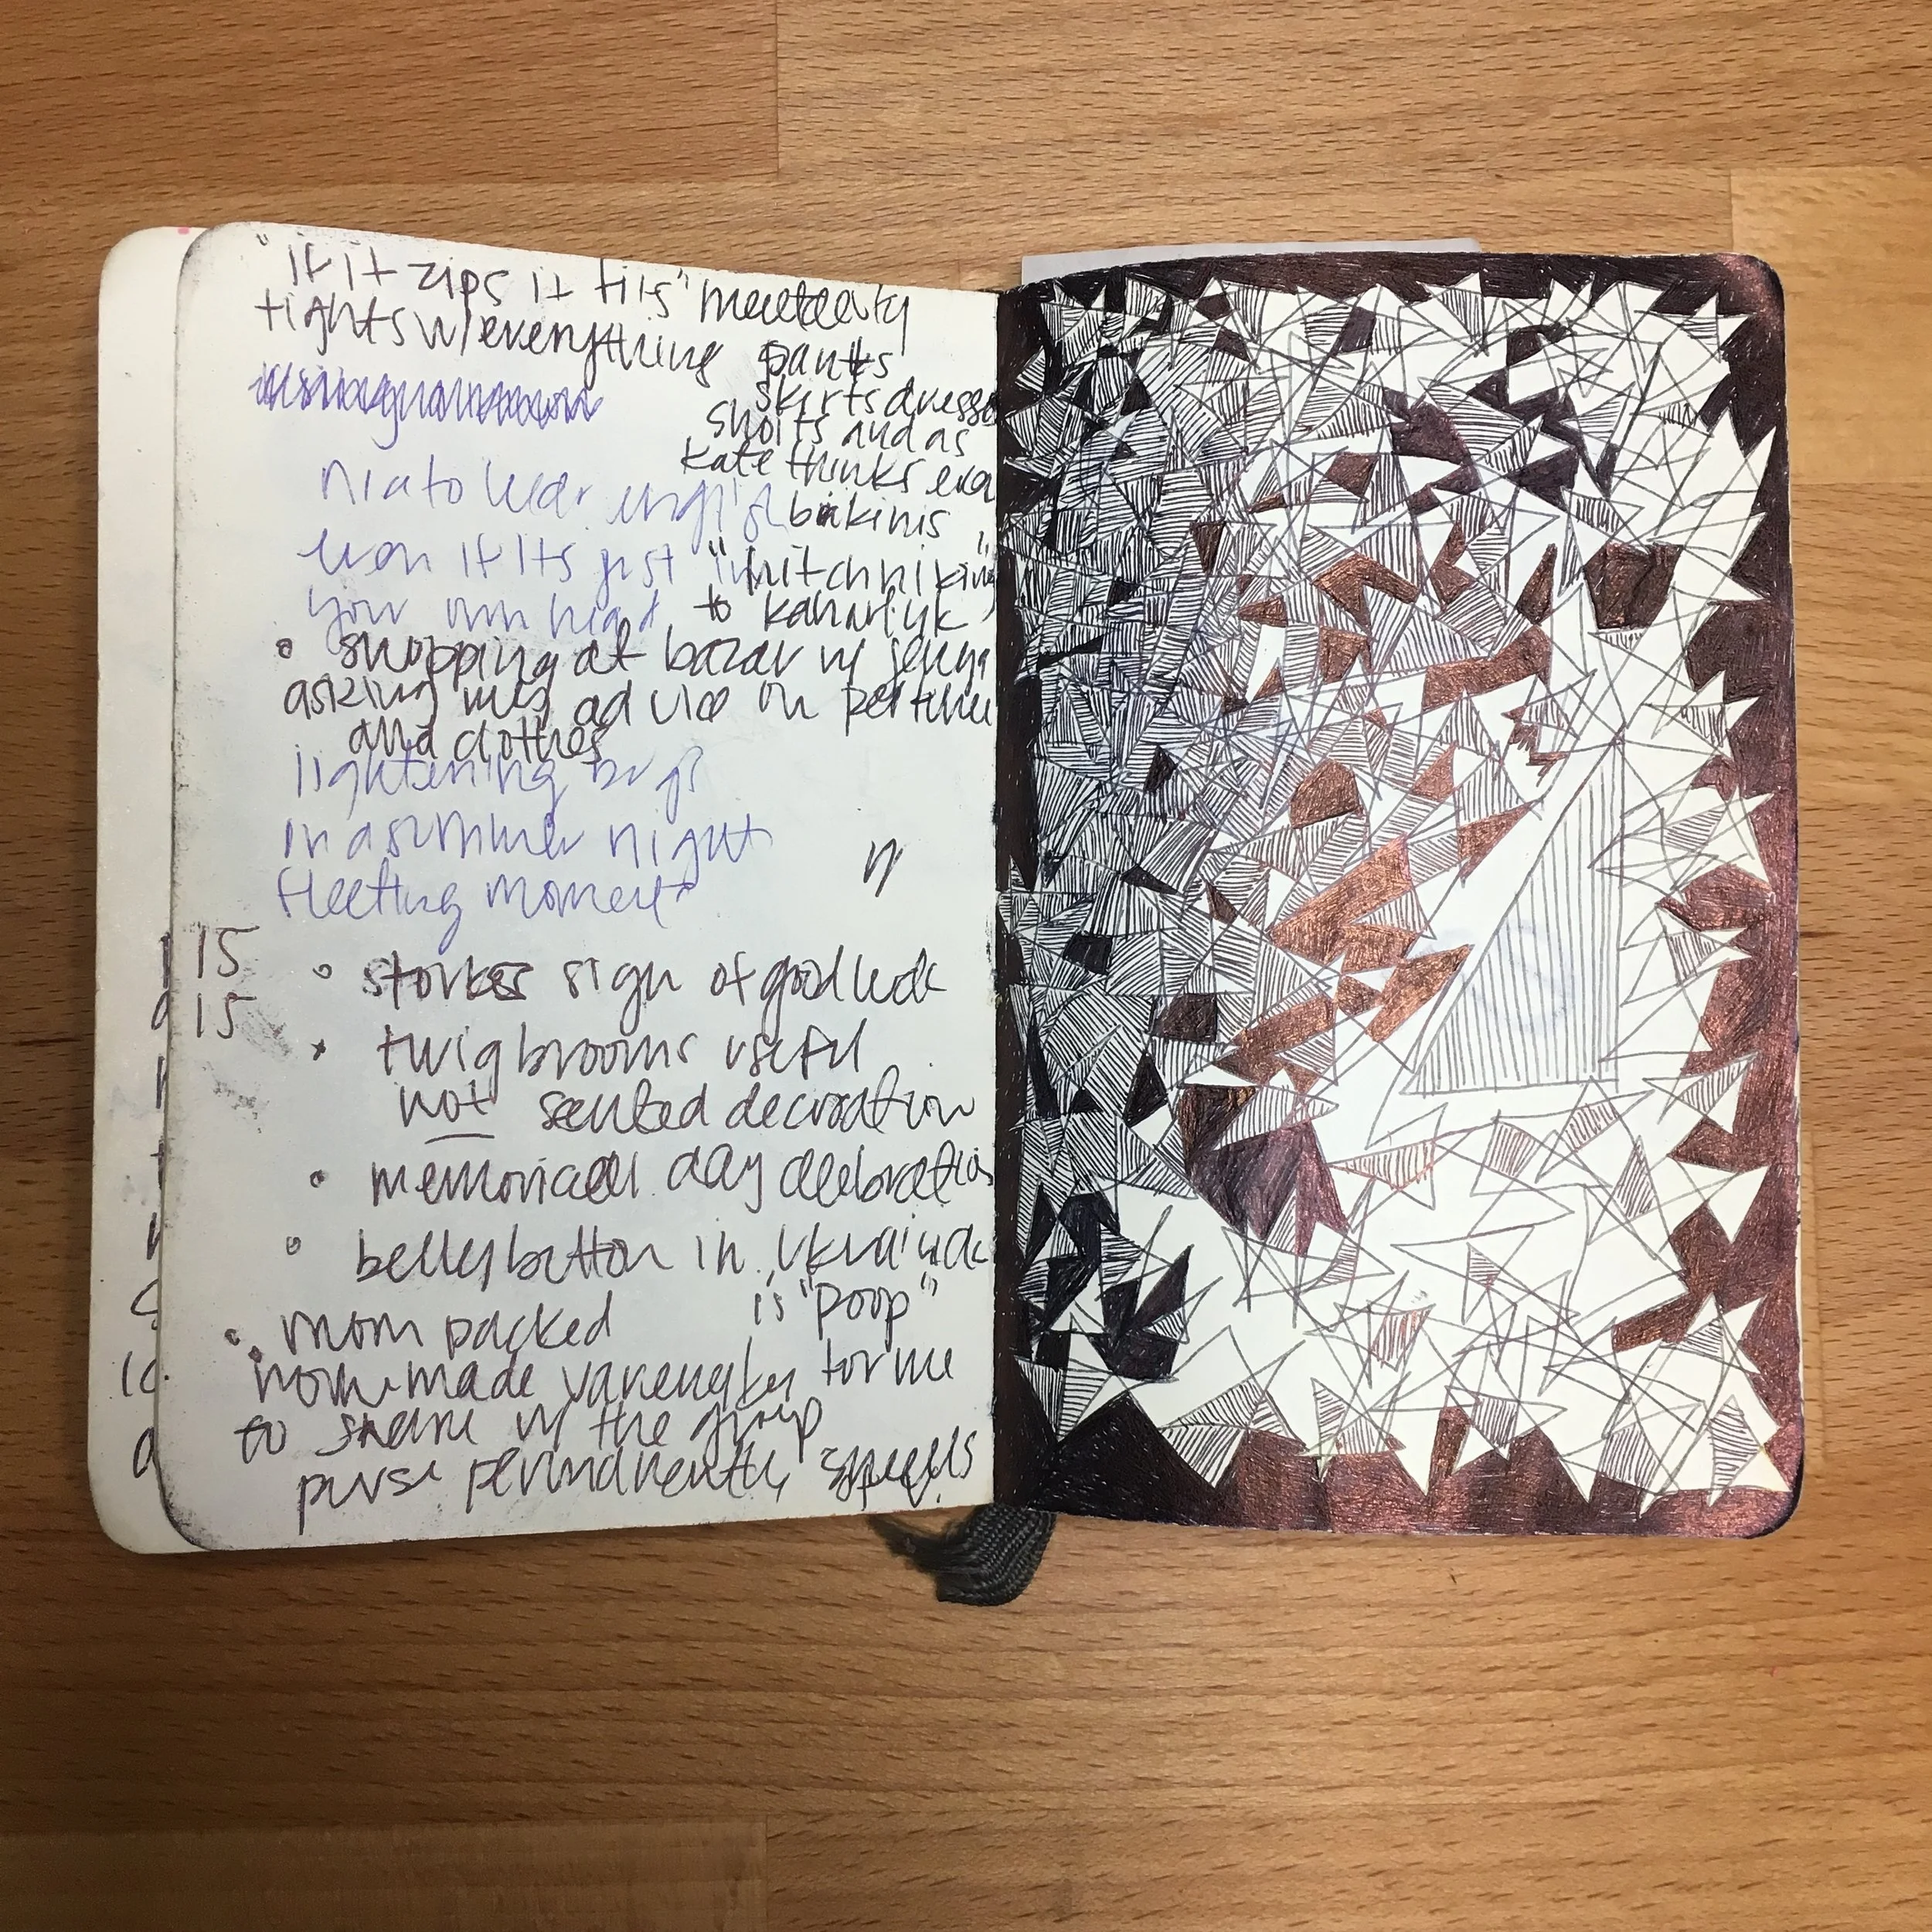 "if it zips it fits"
tights w/ everything pants
skirts dresses
shorts and as
kate thinks even
bikinis
nice to hear english
even if its just in
your own head
"hitchhiking"
to kaharlyk
• shopping at bazar w/ jenya
asking my advice on perfume
and clothes
lightening bugs
in a summer night
fleeting moments
w/
15
15
• storks sign of good luck
• twig brooms useful
not scented decoration
• memorial day celebration
• belly button in Ukraine
is "poop"
• mom packed
home-made varenyky for me
to share w/ the group
purse permanently smells